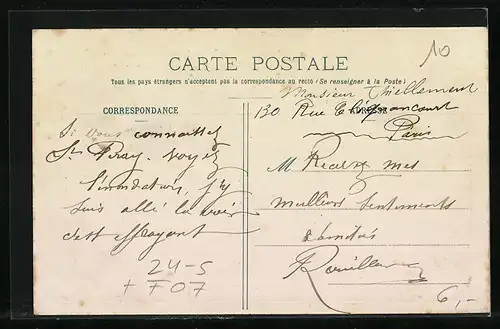 10
CARTE POSTALE
Tous les pays étrangers n'acceptent pas la correspondance au recto (Se renseigner à la Poste)
CORRESPONDANCE
ADRESSE
Monsieur Thiellement
130 Rue Clignancourt
Paris
Si vous connaissez
St Bray. voyez
l'inondation, j'y
suis allé la voir
c'est effrayant
M Recevez mes
meilleurs sentiments
24-5
+ F07
6,-